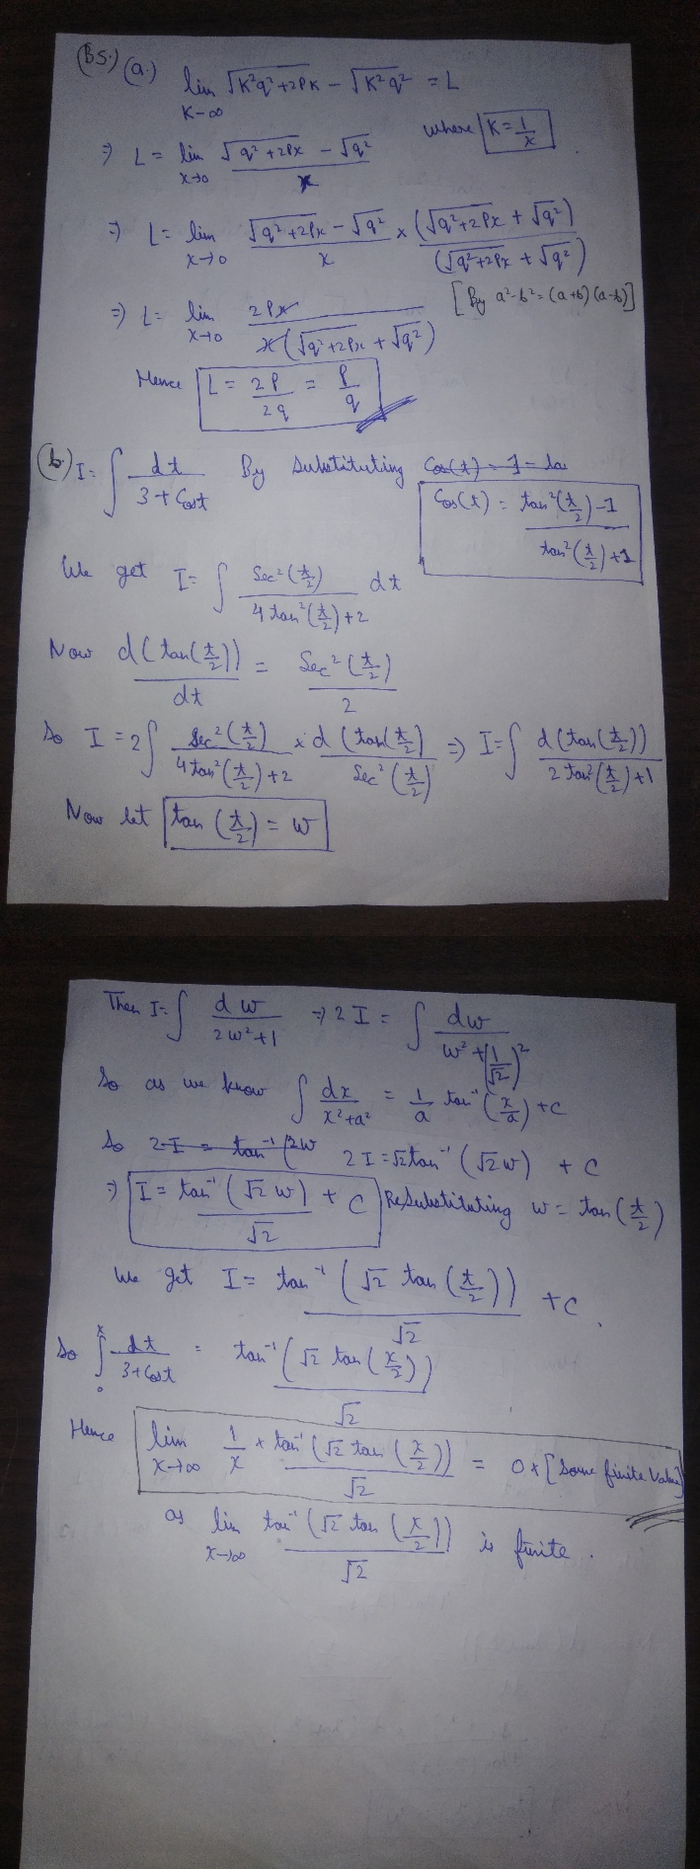 (B5.) (a.) lim K→∞ √K²q²+2PK − √K²q² = L
where K = 1/x
⇒ L = lim x→0 (√q²+2Px − √q²)/x
⇒ L = lim x→0 (√q²+2Px − √q²)/x × (√q²+2Px + √q²)/(√q²+2Px + √q²)
[By a²-b² = (a+b)(a-b)]
⇒ L = lim x→0 2Px/(x(√q²+2Px + √q²))
Hence L = 2P/2q = P/q
(b.) I = ∫ dt/(3+Cost) By Substituting
Cos(t) = (tan²(t/2) − 1)/(tan²(t/2) + 1)
We get I = ∫ Sec²(t/2)/(4tan²(t/2)+2) dt
Now d(tan(t/2))/dt = Sec²(t/2)/2
So I = 2∫ Sec²(t/2)/(4tan²(t/2)+2) × d(tan(t/2))/Sec²(t/2) ⇒ I = ∫ d(tan(t/2))/(2tan²(t/2)+1)
Now let tan(t/2) = w
Then I = ∫ dw/(2w²+1) ⇒ 2I = ∫ dw/(w² + (1/√2)²)
So as we know ∫ dx/(x²+a²) = 1/a tan⁻¹(x/a) + C
So 2I = tan⁻¹(2w 2I = √2 tan⁻¹(√2w) + C
⇒ I = tan⁻¹(√2 w)/√2 + C ReSubstituting w = tan(t/2)
We get I = tan⁻¹(√2 tan(t/2))/√2 + C.
So ∫₀ˣ dt/(3+Cost) = tan⁻¹(√2 tan(x/2))/√2
Hence lim x→∞ 1/x * tan⁻¹(√2 tan(x/2))/√2 = 0 * [Some finite Value]
as lim x→∞ tan⁻¹(√2 tan(x/2))/√2 is finite.